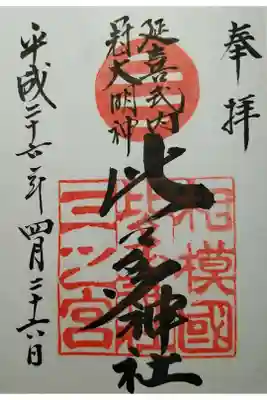 奉拝
延喜式内
冠大明神
比々多神社
相模國
三之宮
平成二十六年四月二十六日